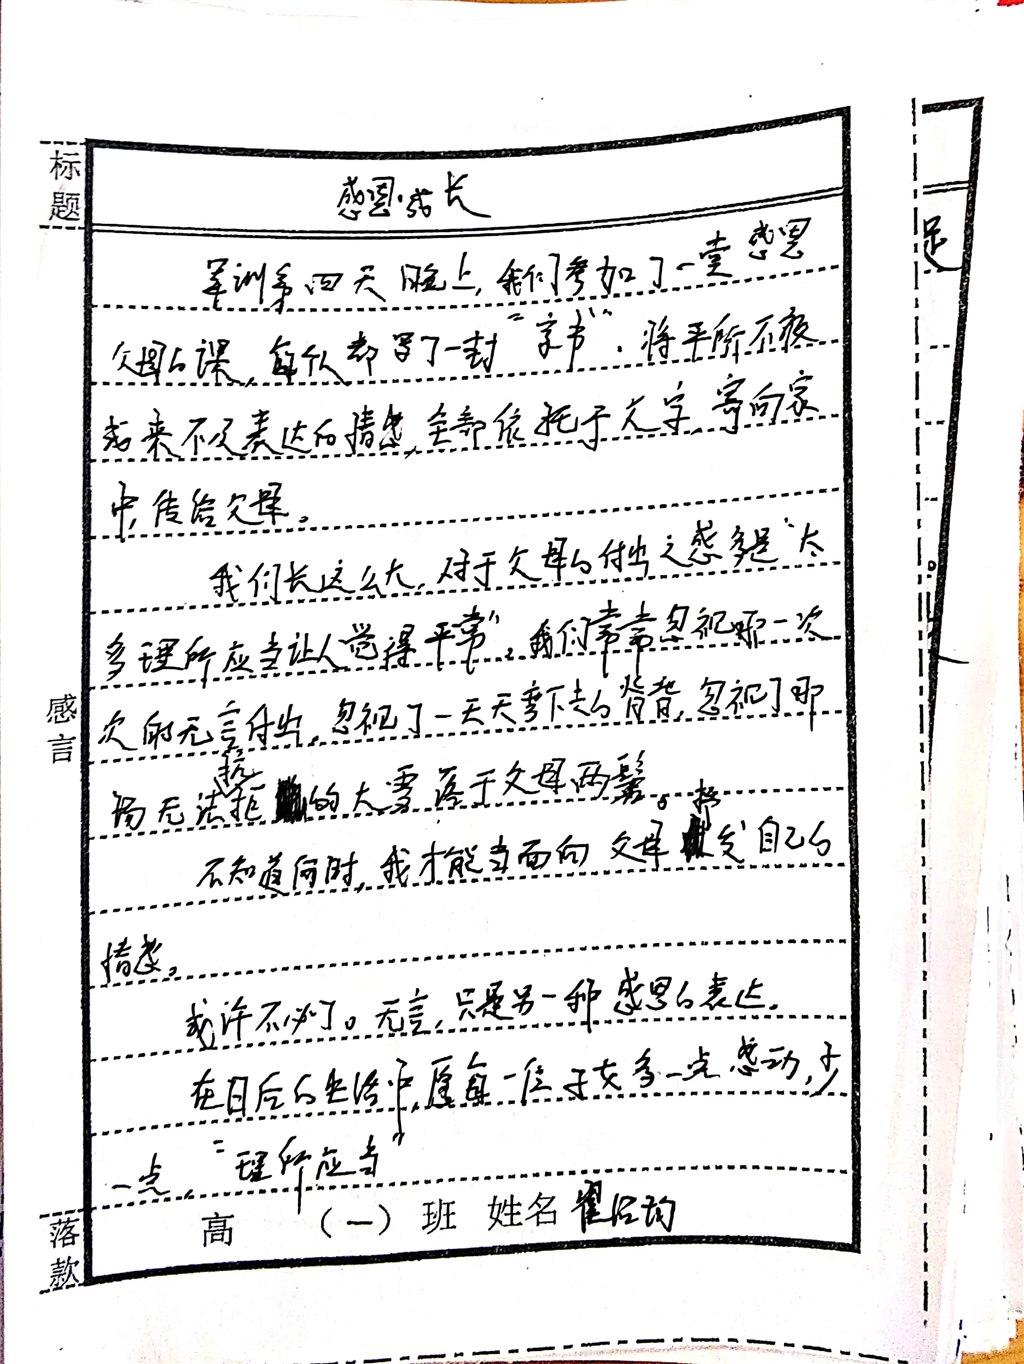 标题
感恩·成长
军训第四天晚上,我们参加了一堂感恩
父母的课,每个人都写了一封“家书”,将平所不敢
或来不及表达的情感,全部依托于文字,寄向家
中,传给父母。
我们长这么大,对于父母的付出之感多是“太
多理所应当让人觉得平常”,我们常常忽视哪一次
次的无言付出,忽视了一天天弯下去的背脊,忽视了那
场无法抗拒的大雪落于父母两鬓。
不知道何时,我才能当面向父母抒发自己的
情感。
或许不必了。无言,只是另一种感恩的表达。
在日后的生活中,愿每一位子女多一点感动,少
一点,“理所应当”
感言
落款
高 (一)班 姓名 翟
足